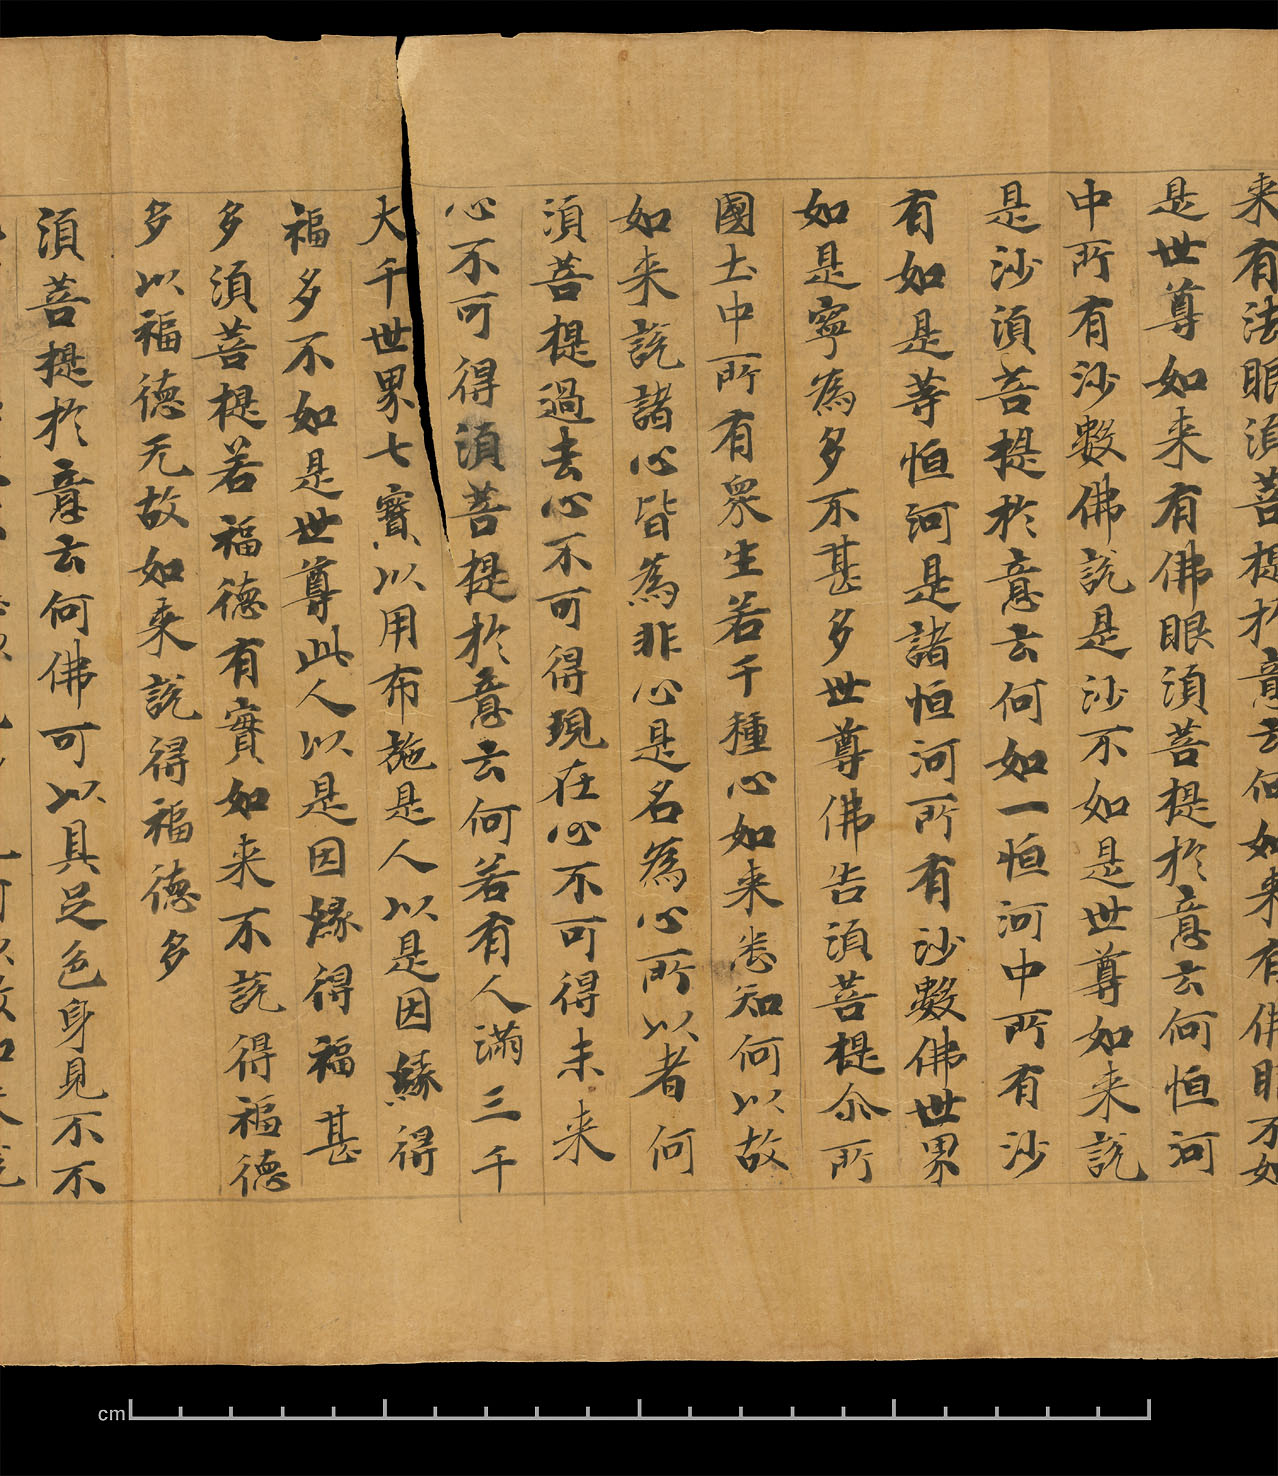 来有法眼須菩提於意云何如来有佛眼不如
是世尊如来有佛眼須菩提於意云何恒河
中所有沙數佛說是沙不如是世尊如来說
是沙須菩提於意云何如一恒河中所有沙
有如是等恒河是諸恒河所有沙數佛世界
如是寧為多不甚多世尊佛告須菩提尒所
國土中所有衆生若干種心如来悉知何以故
如来說諸心皆為非心是名為心所以者何
須菩提過去心不可得現在心不可得未来
心不可得須菩提於意云何若有人滿三千
大千世界七寶以用布施是人以是因緣得
福多不如是世尊此人以是因緣得福甚
多須菩提若福德有實如来不說得福德
多以福德无故如来說得福德多
須菩提於意云何佛可以具足色身見不不